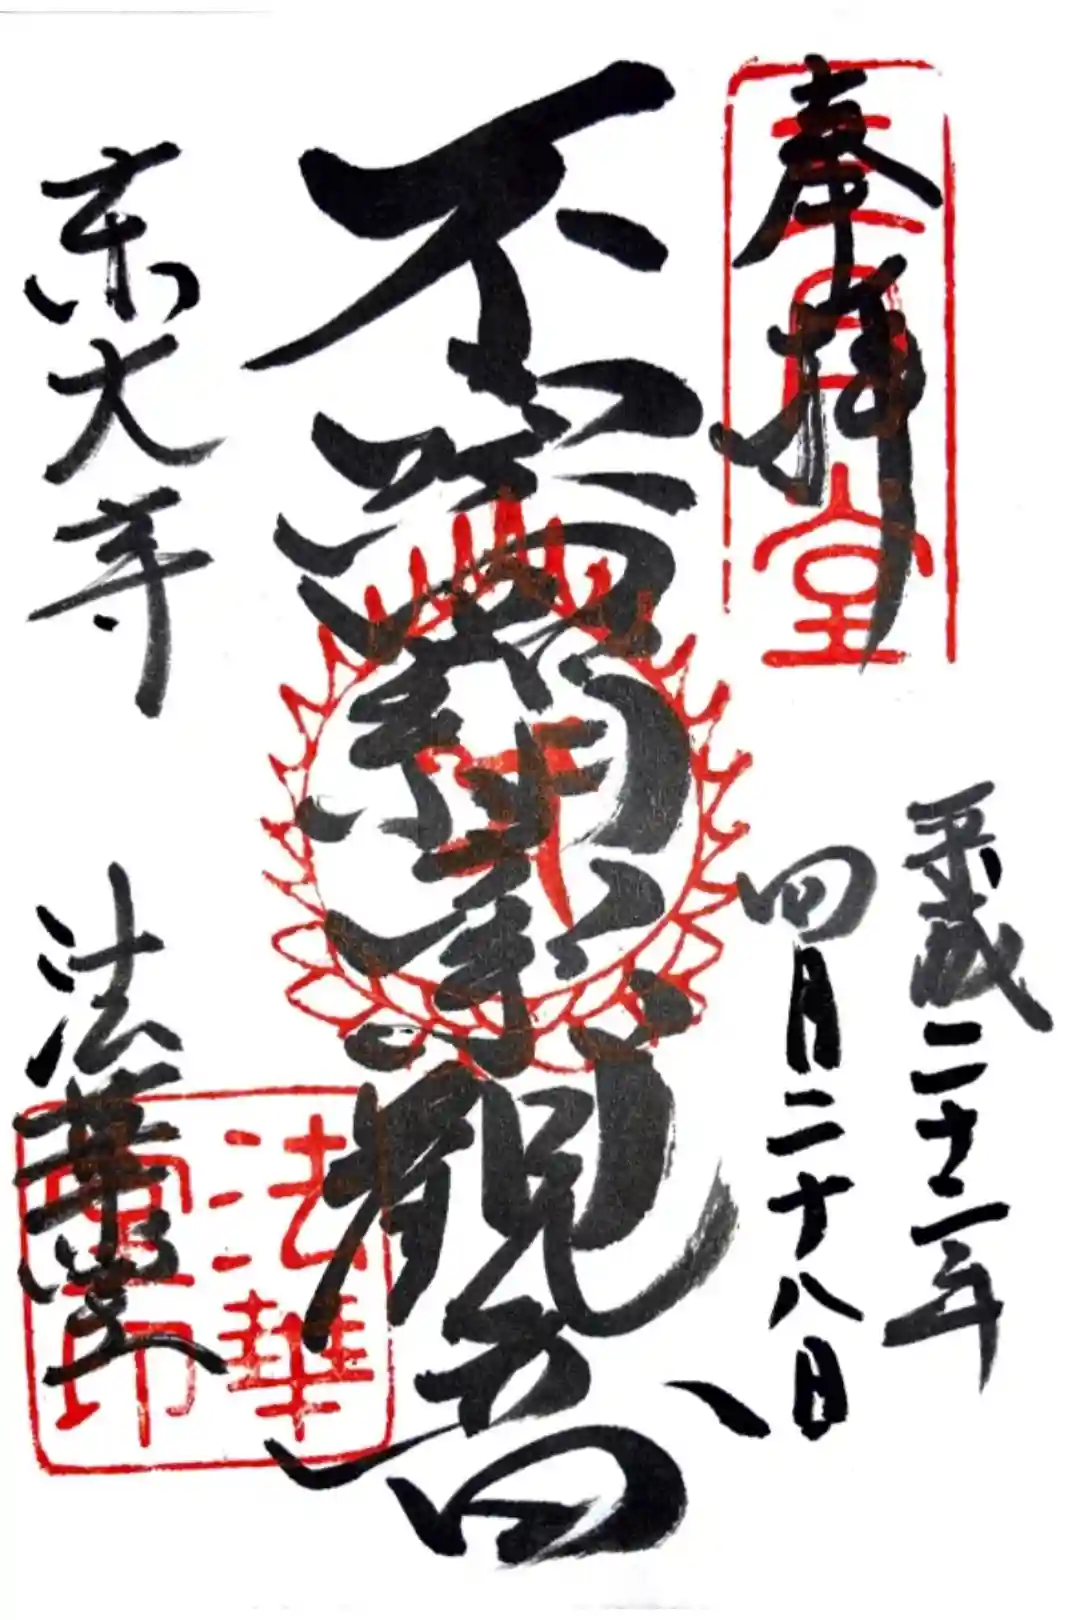 奉拝
三月堂
平成二十二年
四月二十八日
不空羂索観音
東大寺
法華堂
法華堂印